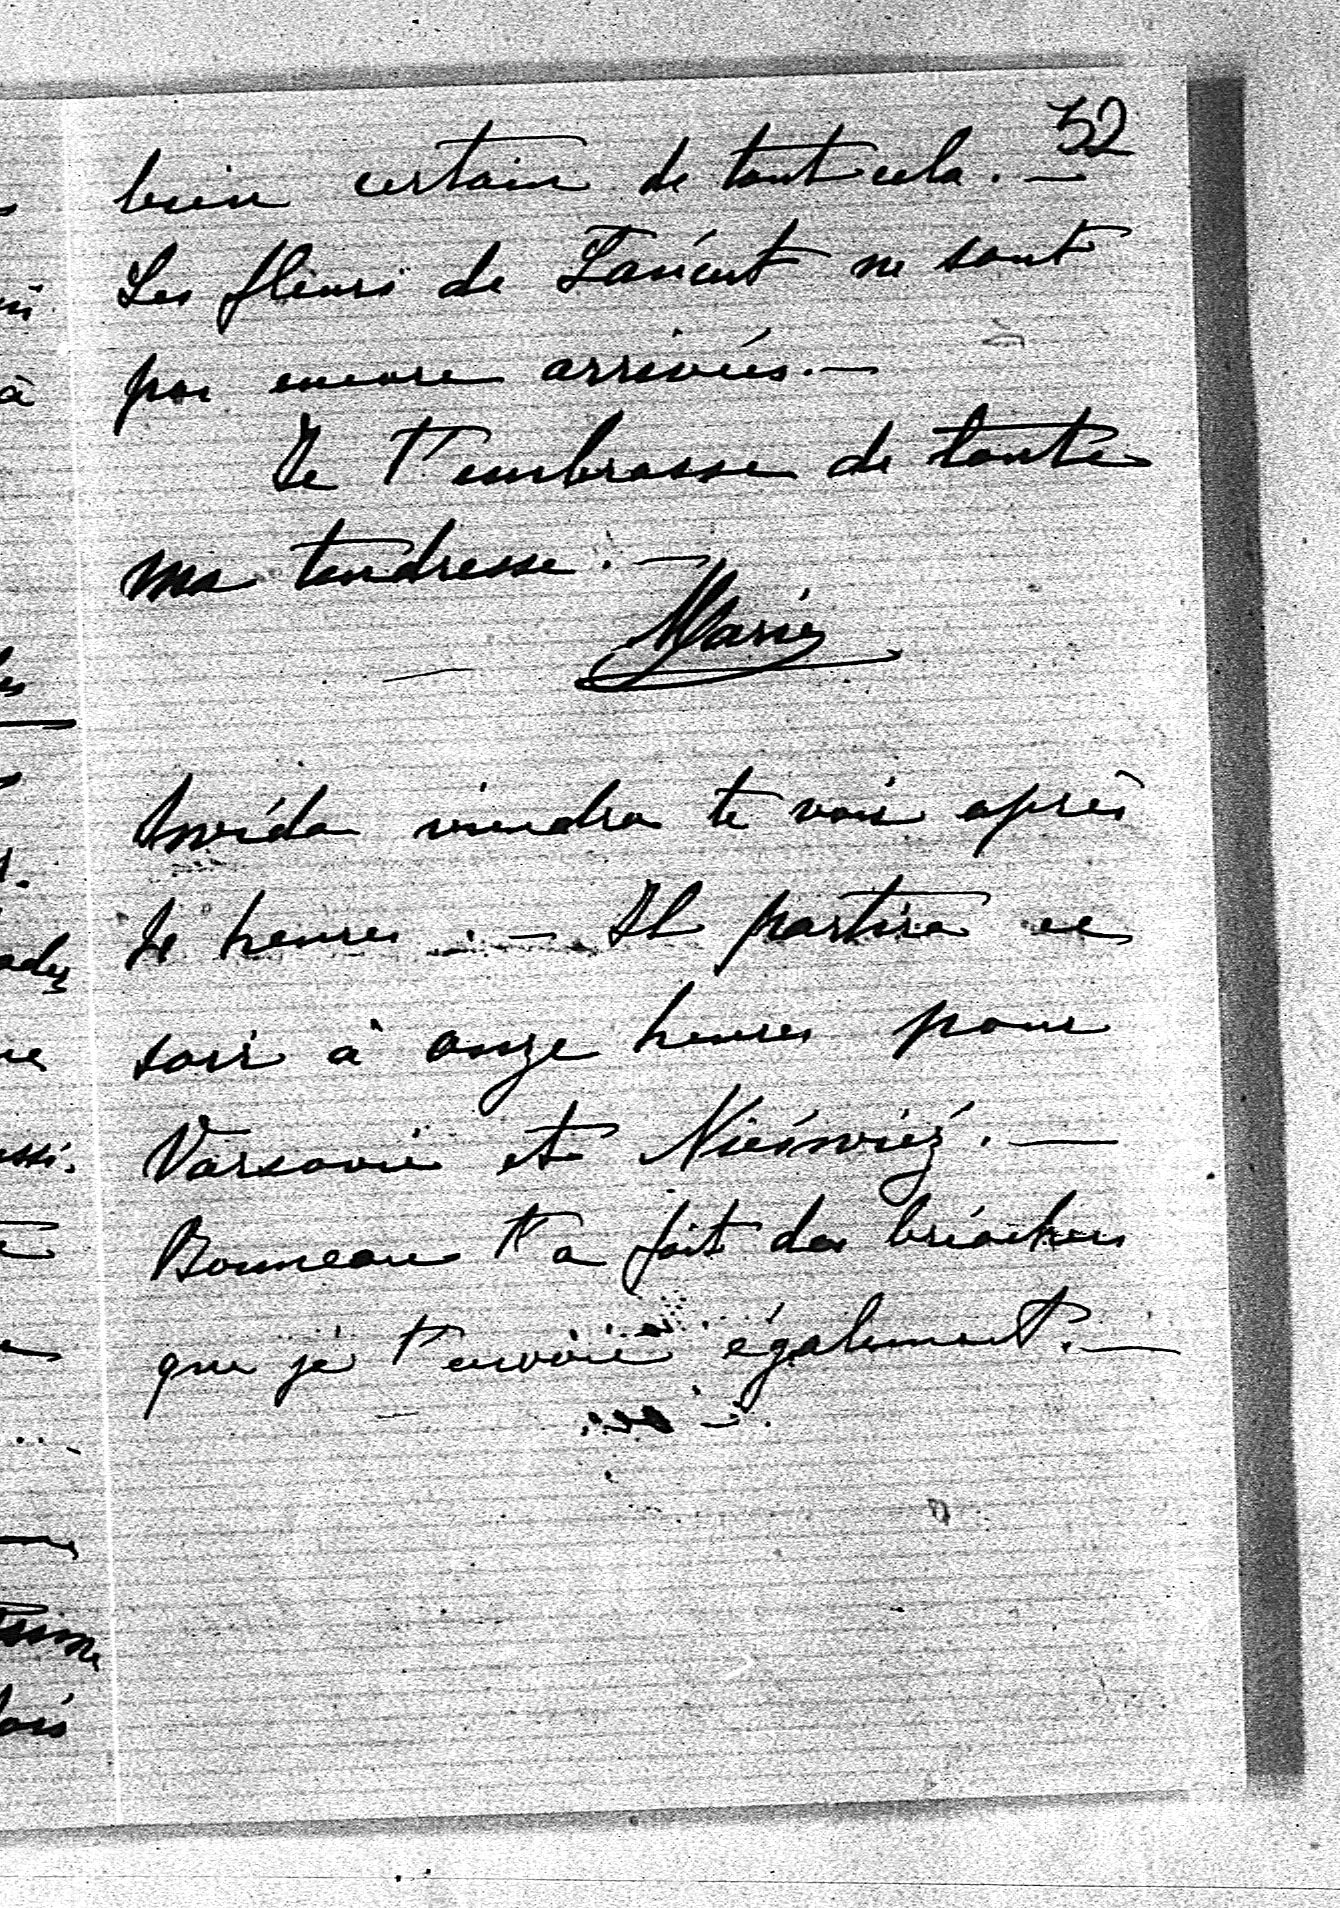 52
bien certain de tout cela. —
Les fleurs de Łańcut ne sont
pas encore arrivées. —
Je t'embrasse de toute
ma tendresse. —
Marie
viendra te voir après
heures. — Il partira ce
soir à onze heures pour
Varsovie et Nieświéż. —
Bonneau t'a fait des brioches
que je t'envoie également. —